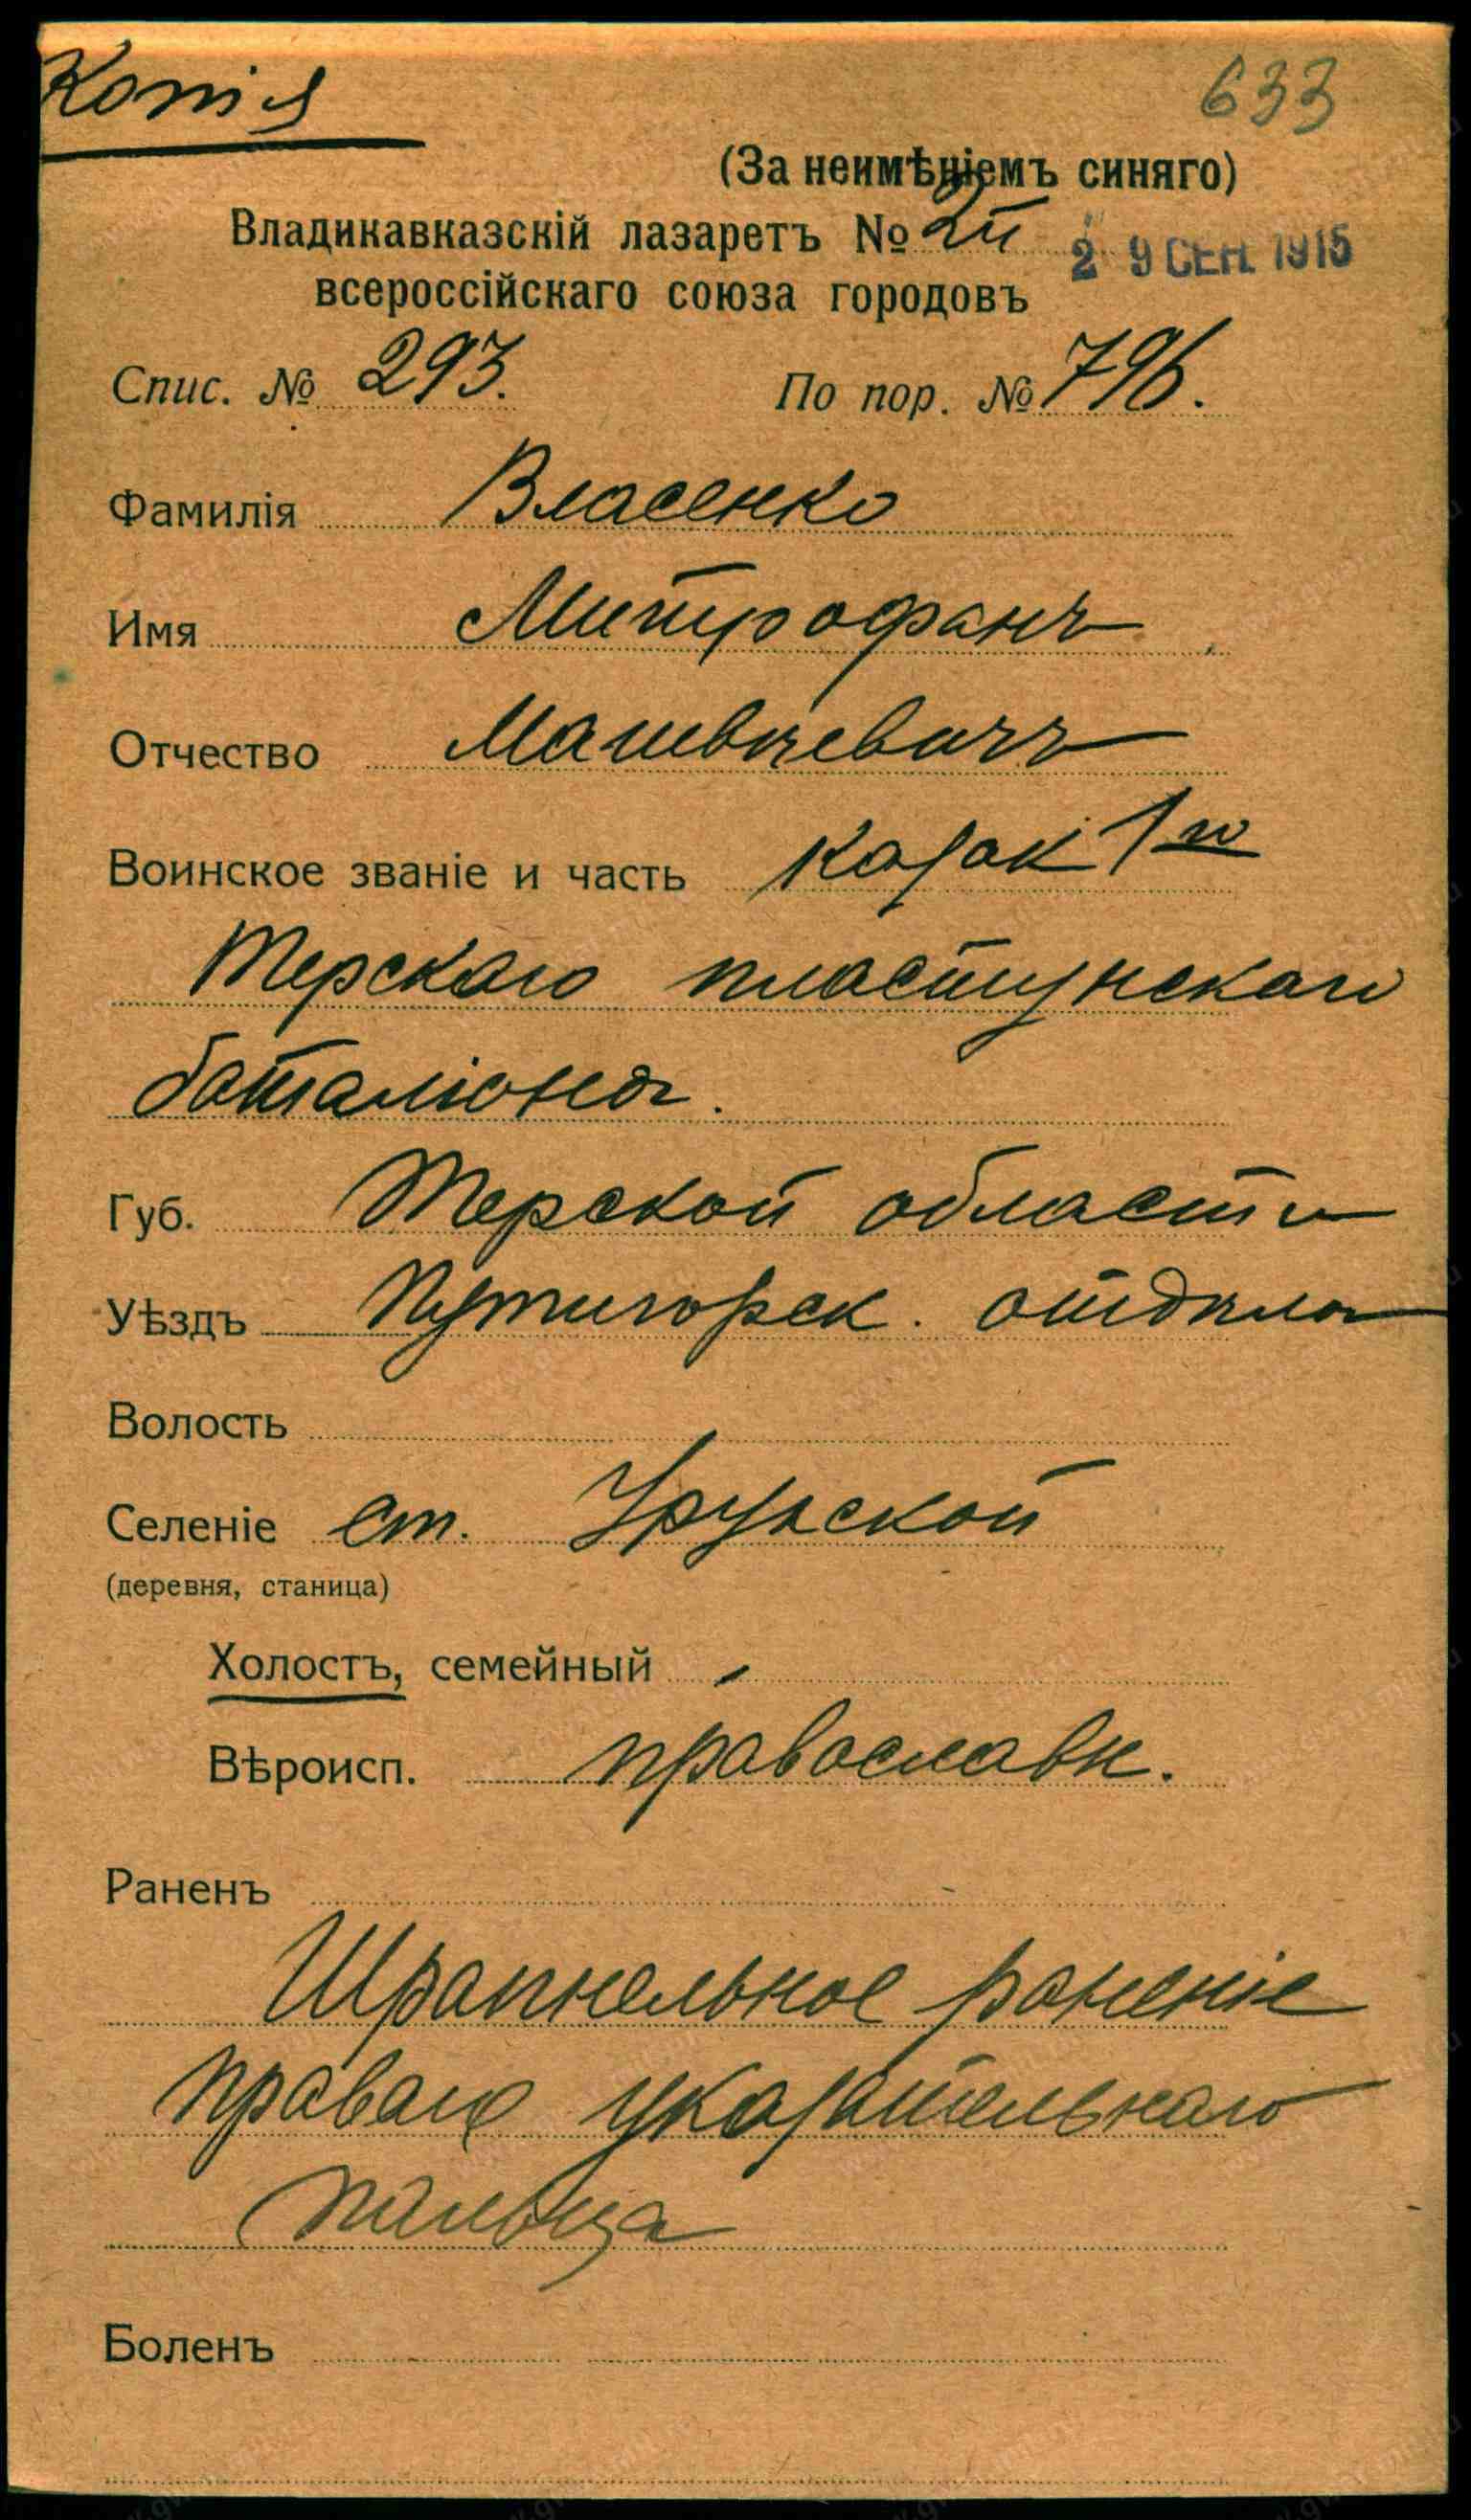 Копія
633
(За неимѣніемъ синяго)
Владикавказскій лазаретъ № 2й
29 СЕН. 1915
всероссійскаго союза городовъ
Спис. № 293. По пор. № 796.
Фамилія Власенко
Имя Митрофанъ
Отчество Матвѣевичъ
Воинское званіе и часть казак 1го
Терскаго пластунскаго
баталіона.
Губ. Терской области
Уѣздъ Пятигорск. отдѣла
Волость
Селеніе ст. Урухской
(деревня, станица)
Холостъ, семейный
Вѣроисп. православн.
Раненъ
Шрапнельное раненіе
праваго указательнаго
пальца
Боленъ